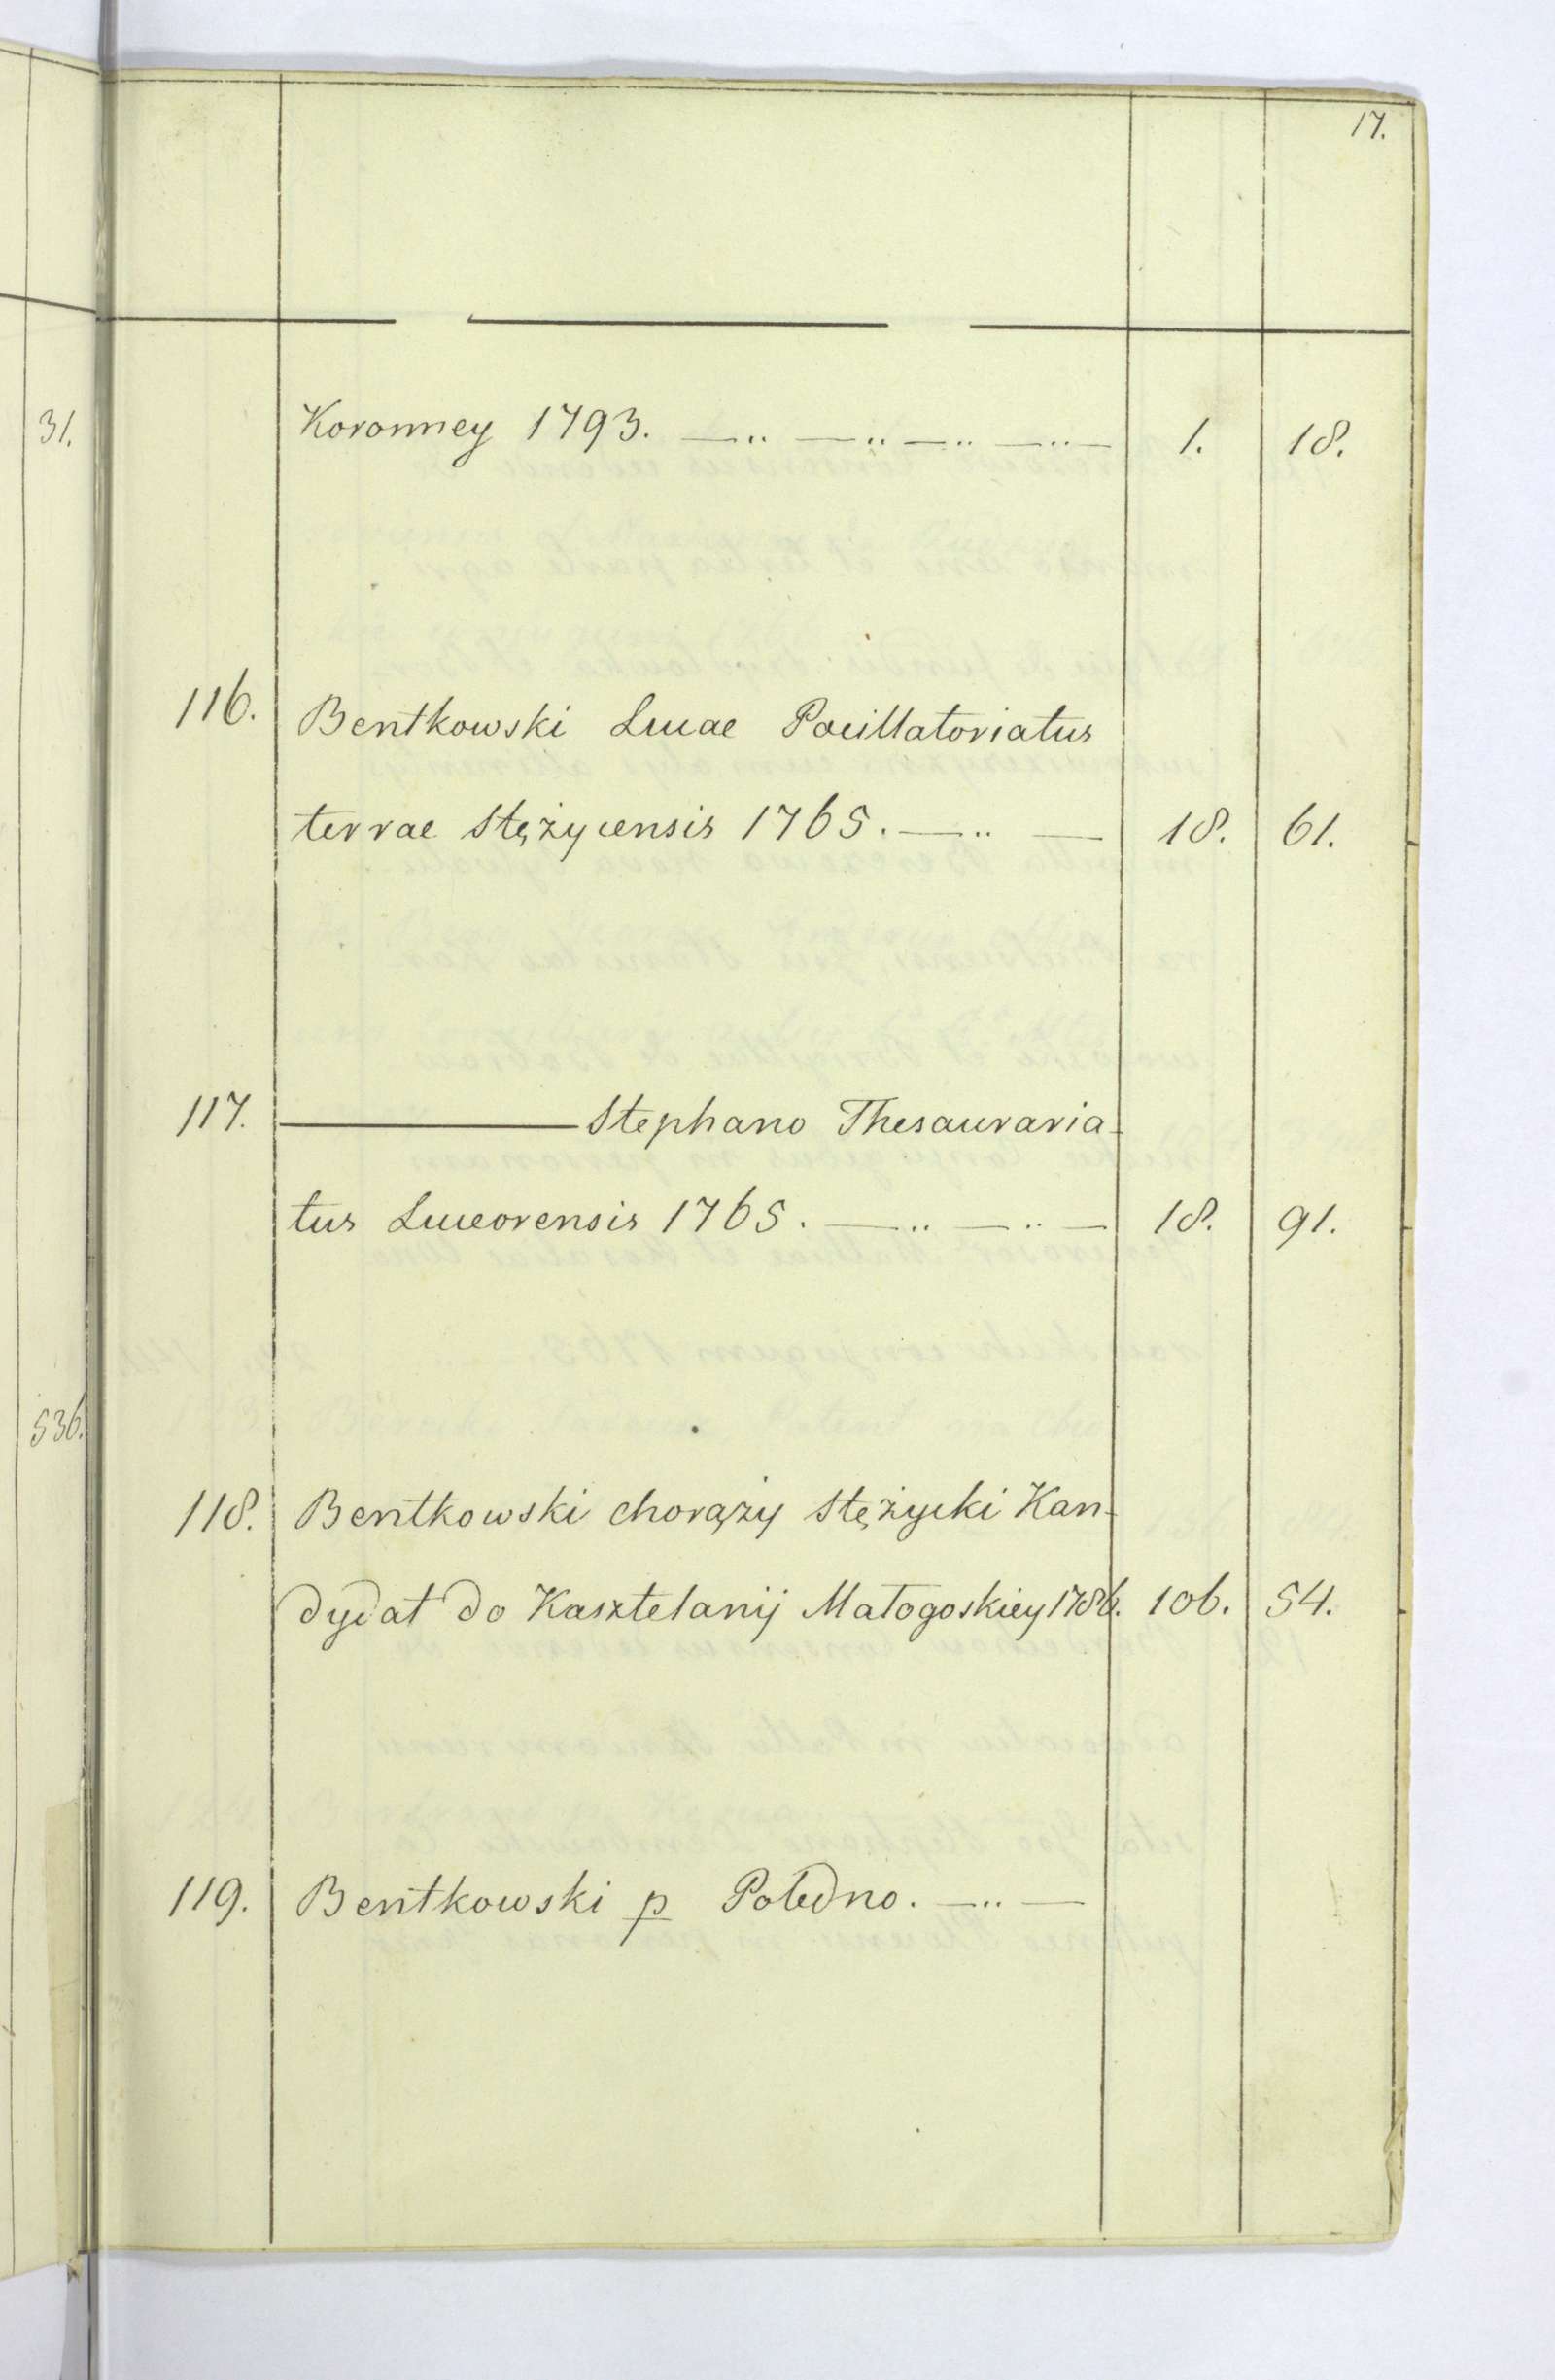 17.
31.
Koronney 1793. 1. 18.
116. Bentkowski Lucae Pocillatoriatus
terrae Stężycensis 1765. 18. 61.
117. Stephano Thesauraria-
tus Luceorensis 1765. 18. 91.
536.
118. Bentkowski chorąży Stężycki Kan-
dydat do Kasztelanij Małogoskiey 1786. 106. 54.
119. Bentkowski p